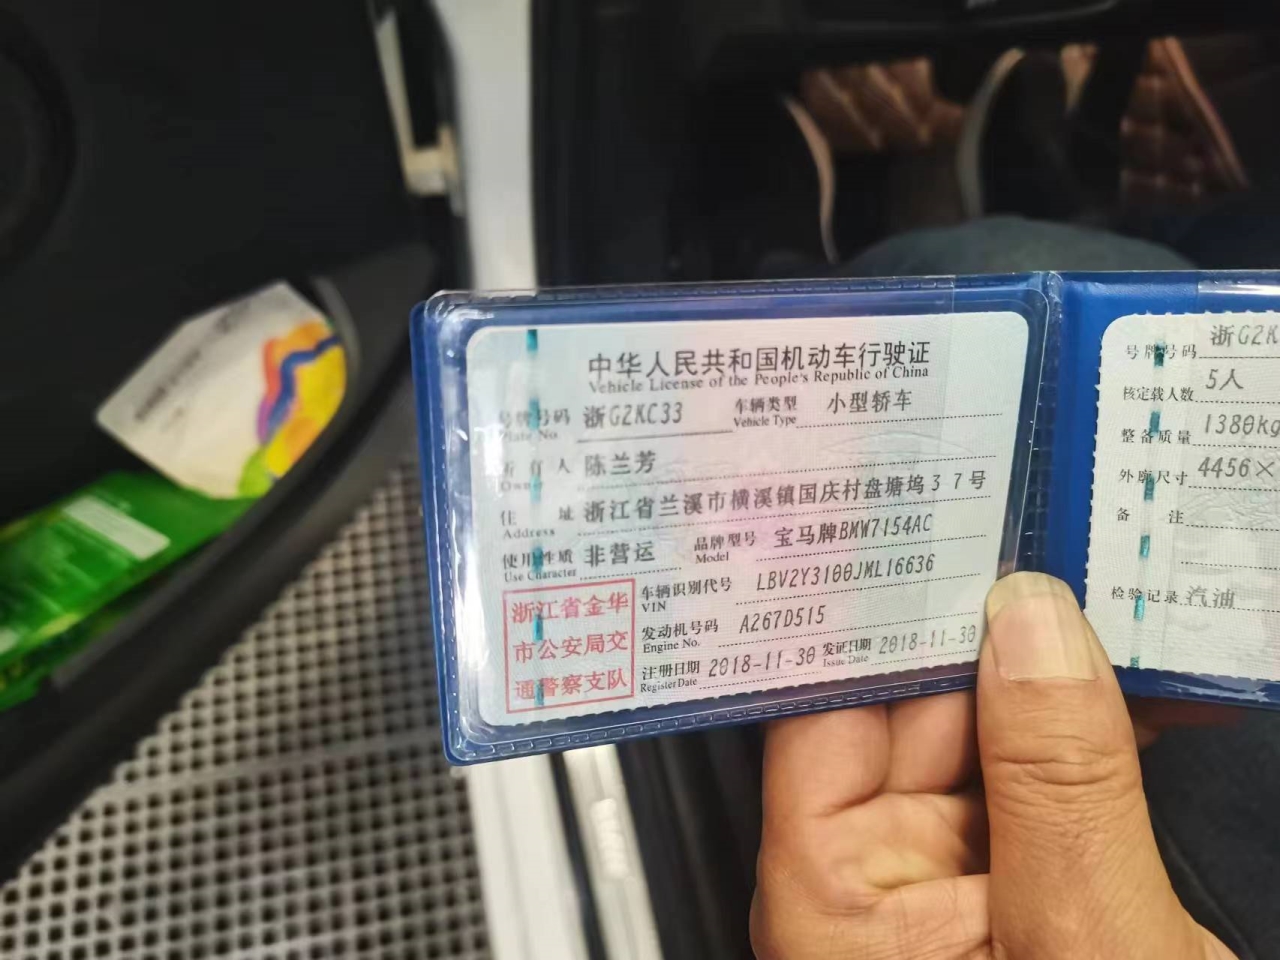 中华人民共和国机动车行驶证
Vehicle License of the People's Republic of China
号牌号码 浙G2KC33 车辆类型 小型轿车
Plate No. Vehicle Type
所有人 陈兰芳
Owner
住址 浙江省兰溪市横溪镇国庆村盘塘坞37号
Address
使用性质 非营运 品牌型号 宝马牌BMW7154AC
Use Character Model
浙江省金华
市公安局交
通警察支队
车辆识别代号 LBV2Y3100JML16636
VIN
发动机号码 A267D515
Engine No.
注册日期 2018-11-30 发证日期 2018-11-30
Register Date Issue Date
号牌号码 浙G2K
核定载人数 5人
整备质量 1380kg
外廓尺寸 4456×
备注
检验记录 汽油